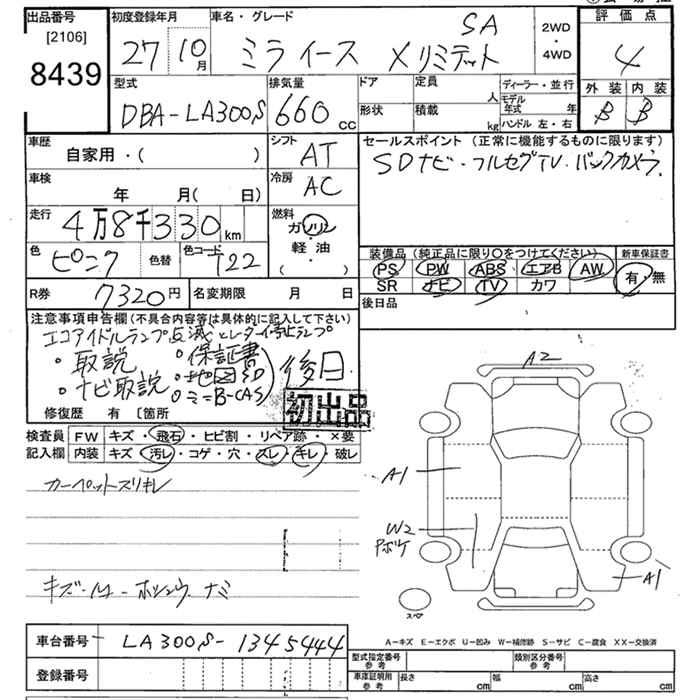 出品番号
[2106]
8439
初度登録年月
27 10月
車名・グレード
ミライース X リミテッド SA
2WD
・
4WD
評価点
4
外装 内装
B B
型式
DBA-LA300S
排気量
660 cc
ドア
形状
定員
人
積載
kg
ディーラー・並行
モデル年式 年
ハンドル 左・右
車歴
自家用・( )
シフト
AT
セールスポイント (正常に機能するものに限ります)
SDナビ・フルセグTV・バックカメラ
車検
年 月( 日)
冷房
AC
走行
4万8千330km
燃料
ガソリン
軽・油
・( )
色
ピンク
色替
色コード
T22
装備品 (純正品に限り○をつけてください)
新車保証書
PS PW ABS エアB AW
有・無
SR ナビ TV カワ
R券
7320円
名変期限 月 日
後日品
注意事項申告欄 (不具合内容等は具体的に記入して下さい)
・取説 ・保証書
・ナビ取説 ・地図SD
B-CAS
後日
初出品
修復歴 有 〔箇所
検査員
記入欄
FW キズ・飛石・ヒビ割・リペア跡・×要
内装 キズ・汚レ・コゲ・穴・スレ・キレ・破レ
カーペットスリキレ
A2
A1
W2
A1
スペア
A-キズ E-エクボ U-凹み W-補修跡 S-サビ C-腐食 XX-交換済
車台番号
LA300S-1345444
登録番号
型式指定番号
参考
類別区分番号
参考
車庫証明用
参考
長さ cm
幅 cm
高さ cm